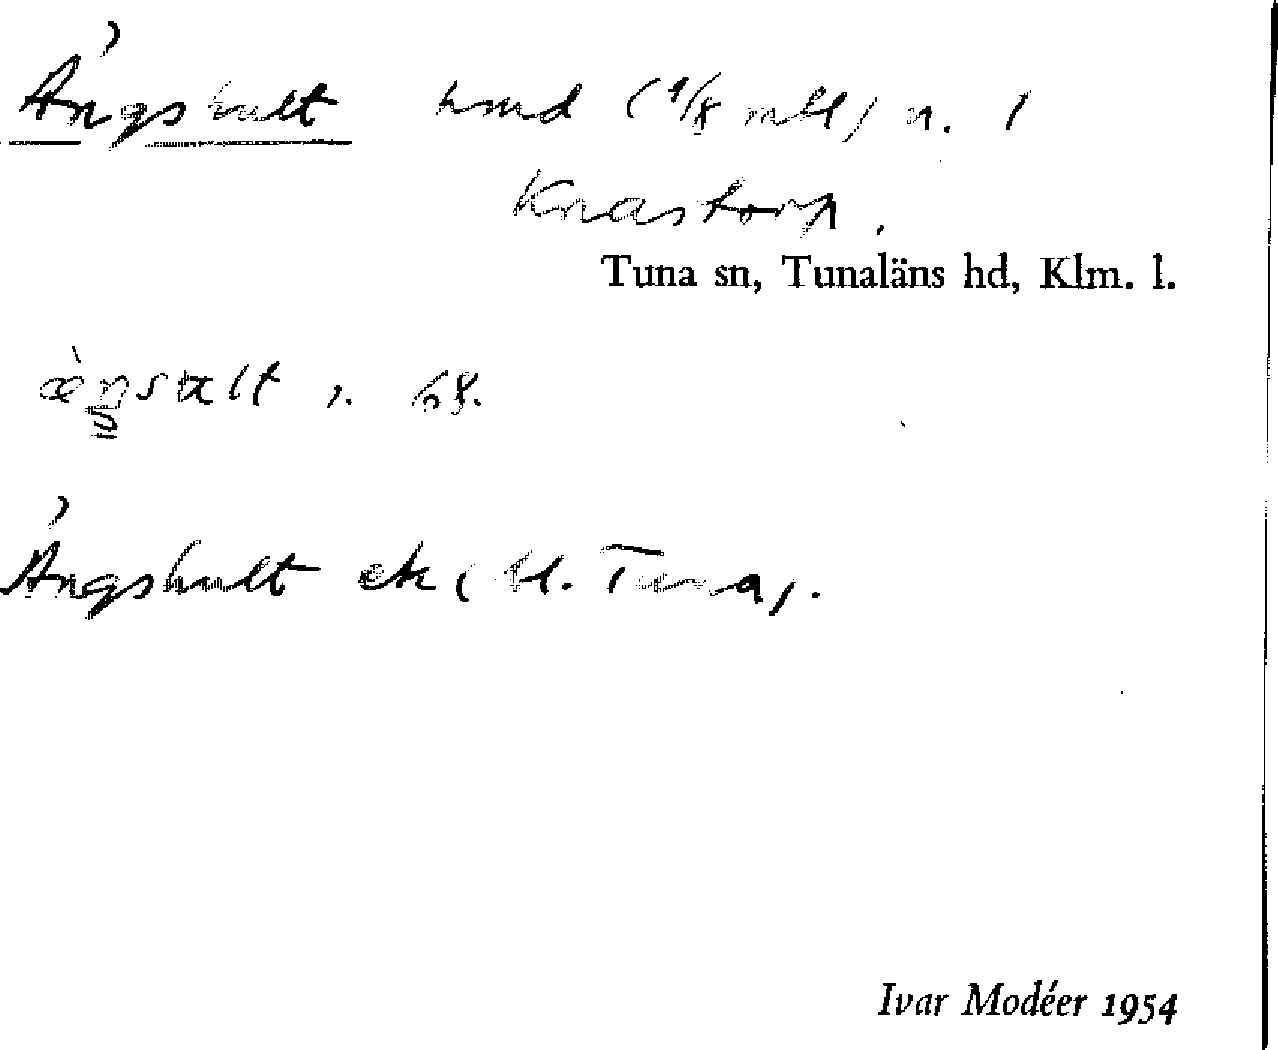 Ängshult hmd (1/8 mtl) n. i
Knastorp.
Tuna sn, Tunaläns hd, Klm. l.
Ängshult ek (bl. Tuna).
Ivar Modéer 1954